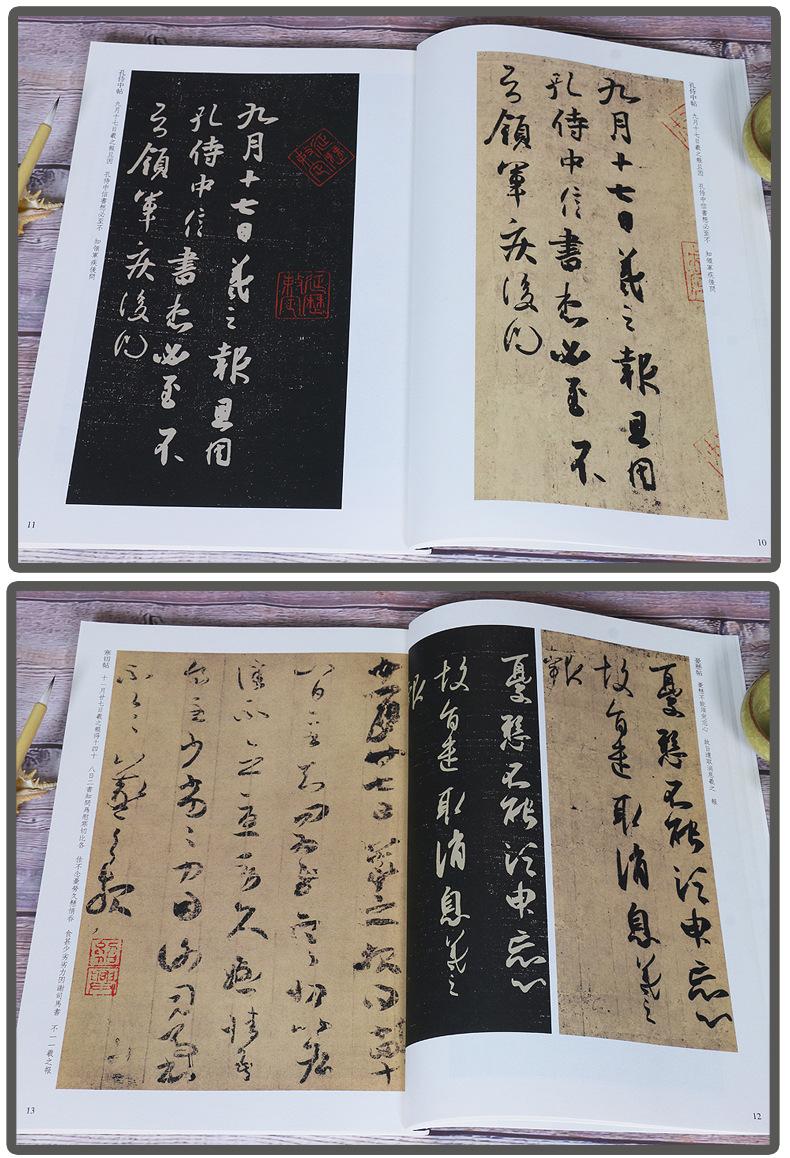 孔侍中帖 九月十七日羲之報且因 孔侍中信書想必至不 知領軍疾後問
九月十七日羲之報且因
孔侍中信書想必至不
知領軍疾後問
10
九月十七日羲之報且因
孔侍中信書想必至不
知領軍疾後問
孔侍中帖 九月十七日羲之報且因 孔侍中信書想必至不 知領軍疾後問
11
憂懸帖 憂懸不能須臾忘心 故旨遣取消息羲之 報
憂懸不能須臾忘心
故旨遣取消息羲之
報
憂懸不能須臾忘心
故旨遣取消息羲之
報
12
十一月廿七日羲之報得十四十
八日二書知問為慰寒切比各
佳不念憂勞久懸情吾
食甚少劣劣力因謝司馬書
不一一羲之報
紹興
寒切帖 十一月廿七日羲之報得十四十 八日二書知問為慰寒切比各 佳不念憂勞久懸情吞 食甚少劣劣力因謝司馬書 不一一羲之報
13